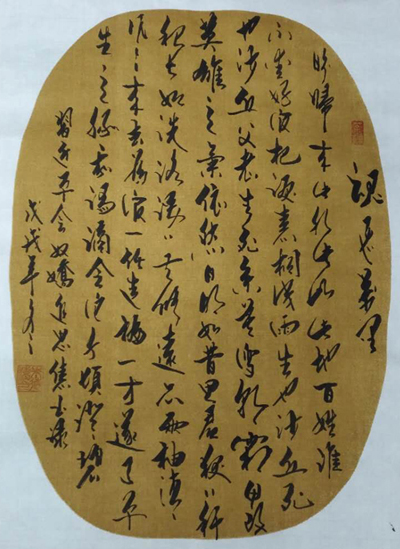 魂飞万里
盼归来此水此山此地百姓谁
不爱好官把泪焦桐成雨生也沙丘死
也沙丘父老生死系暮雪朝霜毋改
英雄意气依然月明如昔思君夜夜肝
胆长如洗路漫漫其修远矣两袖清
风来去为官一任造福一方遂了平
生意绿我涓滴会它千顷澄碧
习近平念奴娇追思焦裕禄
戊戌年冬